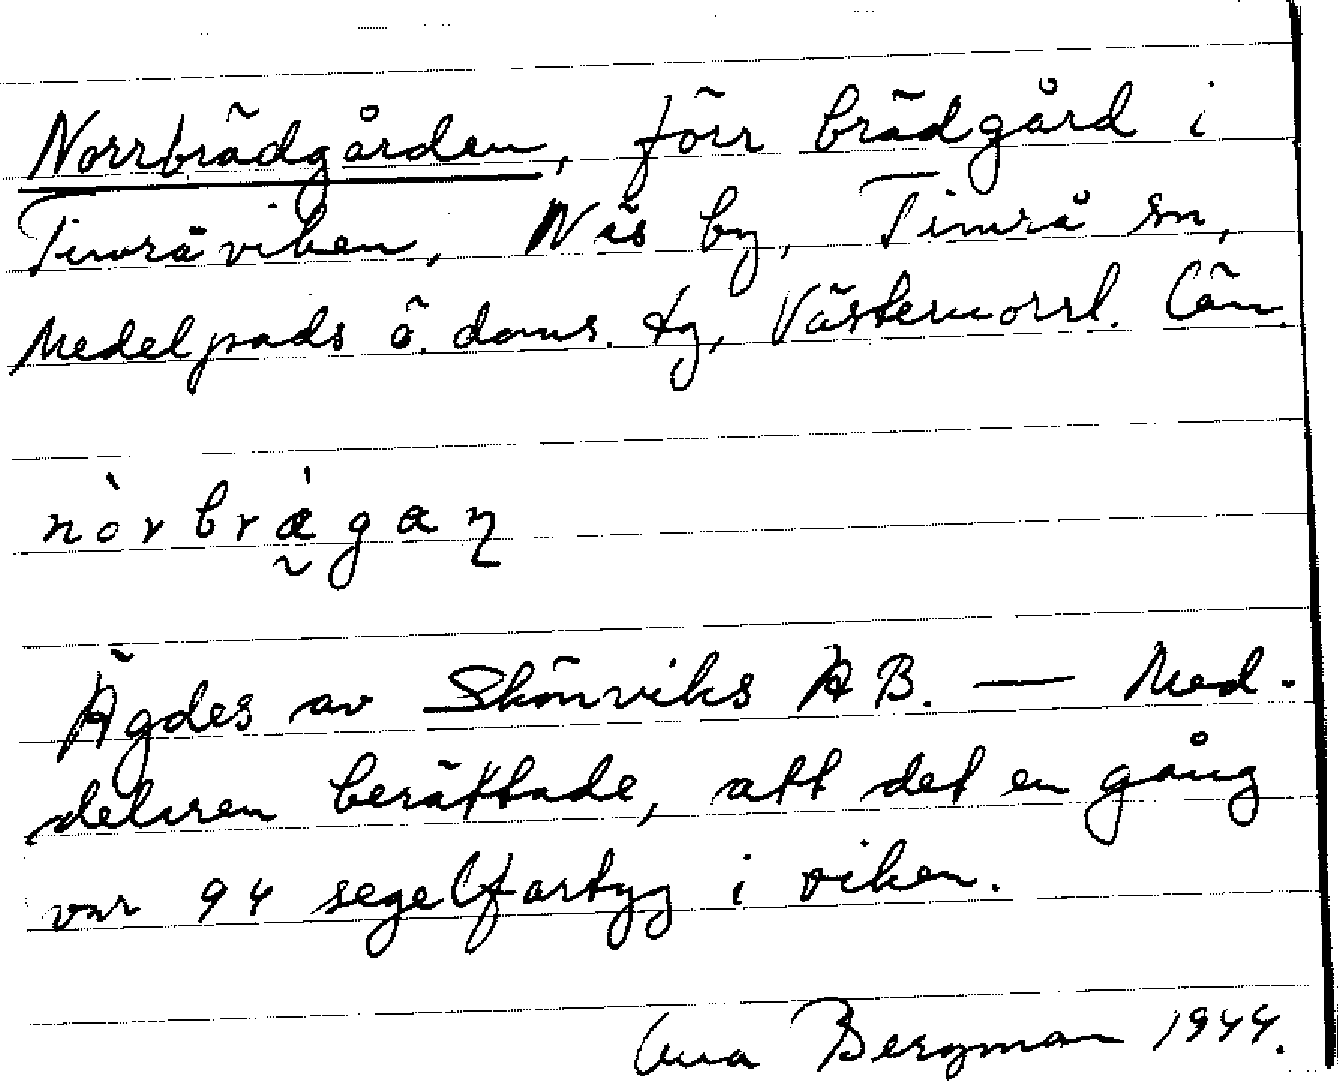 Norrbrädgården, förr brädgård i
Timråviken, Näs by, Timrå sn,
Medelpads ö. doms. tg, Västernorrl. län.
nòrbrá̰gaɳ
Ägdes av Skönviks AB. — Med-
delaren berättade, att det en gång
var 94 segelfartyg i viken.
Bergman 1944.